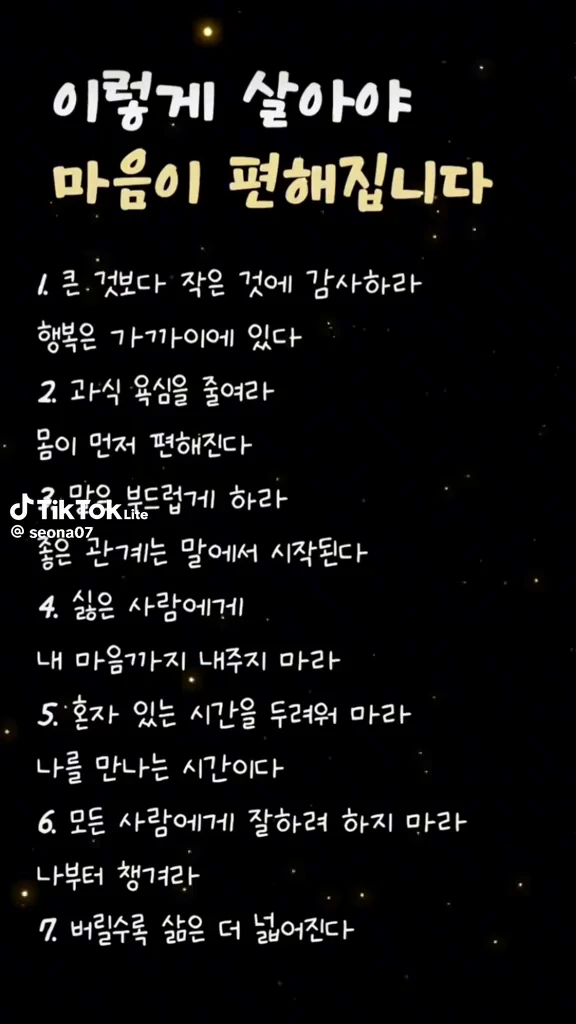 이렇게 살아야
마음이 편해집니다
1. 큰 것보다 작은 것에 감사하라
행복은 가까이에 있다
2. 과식 욕심을 줄여라
몸이 먼저 편해진다
3. 말은 부드럽게 하라
TikTok Lite
@ seona07
좋은 관계는 말에서 시작된다
4. 싫은 사람에게
내 마음까지 내주지 마라
5. 혼자 있는 시간을 두려워 마라
나를 만나는 시간이다
6. 모든 사람에게 잘하려 하지 마라
나부터 챙겨라
7. 버릴수록 삶은 더 넓어진다